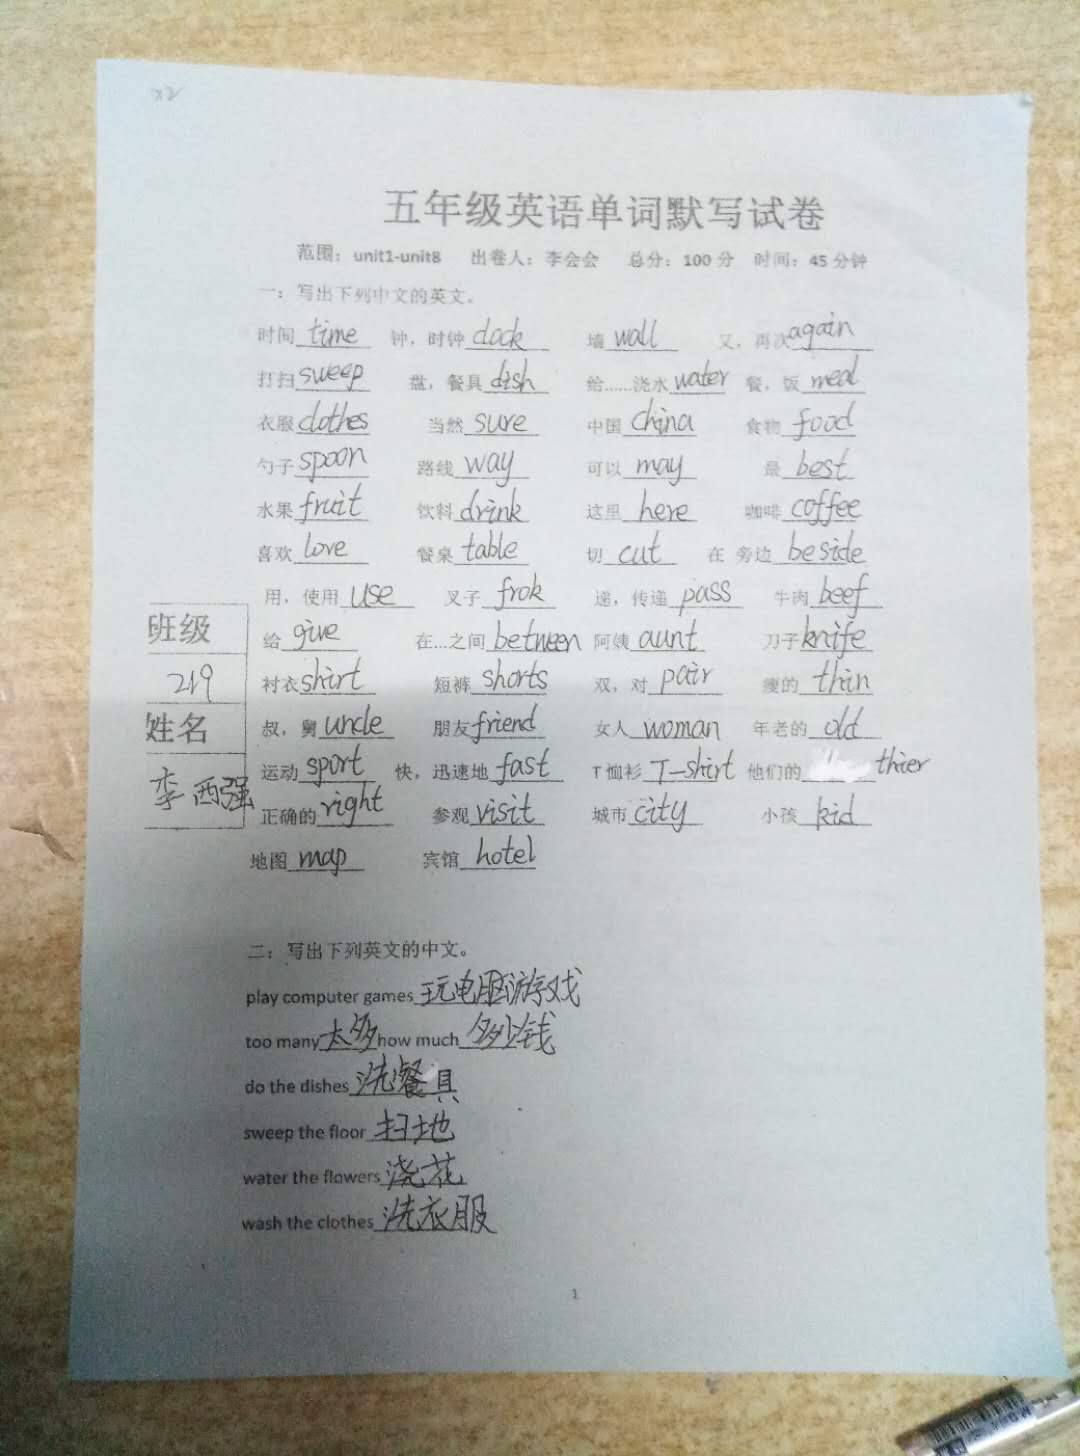 五年级英语单词默写试卷
范围：unit1-unit8 出卷人：李会会 总分：100分 时间：45分钟
一：写出下列中文的英文。
时间 time 钟，时钟 clock 墙 wall 又，再次 again
打扫 sweep 盘，餐具 dish 给……浇水 water 餐，饭 meal
衣服 clothes 当然 sure 中国 china 食物 food
勺子 spoon 路线 way 可以 may 最 best
水果 fruit 饮料 drink 这里 here 咖啡 coffee
喜欢 love 餐桌 table 切 cut 在 旁边 beside
用，使用 use 叉子 frok 递，传递 pass 牛肉 beef
给 give 在…之间 between 阿姨 aunt 刀子 knife
衬衣 shirt 短裤 shorts 双，对 pair 瘦的 thin
叔，舅 uncle 朋友 friend 女人 woman 年老的 old
运动 sport 快，迅速地 fast T恤衫 T-shirt 他们的 thier
正确的 right 参观 visit 城市 city 小孩 kid
地图 map 宾馆 hotel
班级
219
姓名
李西强
二：写出下列英文的中文。
play computer games 玩电脑游戏
too many 太多 how much 多少钱
do the dishes 洗餐具
sweep the floor 扫地
water the flowers 浇花
wash the clothes 洗衣服
1